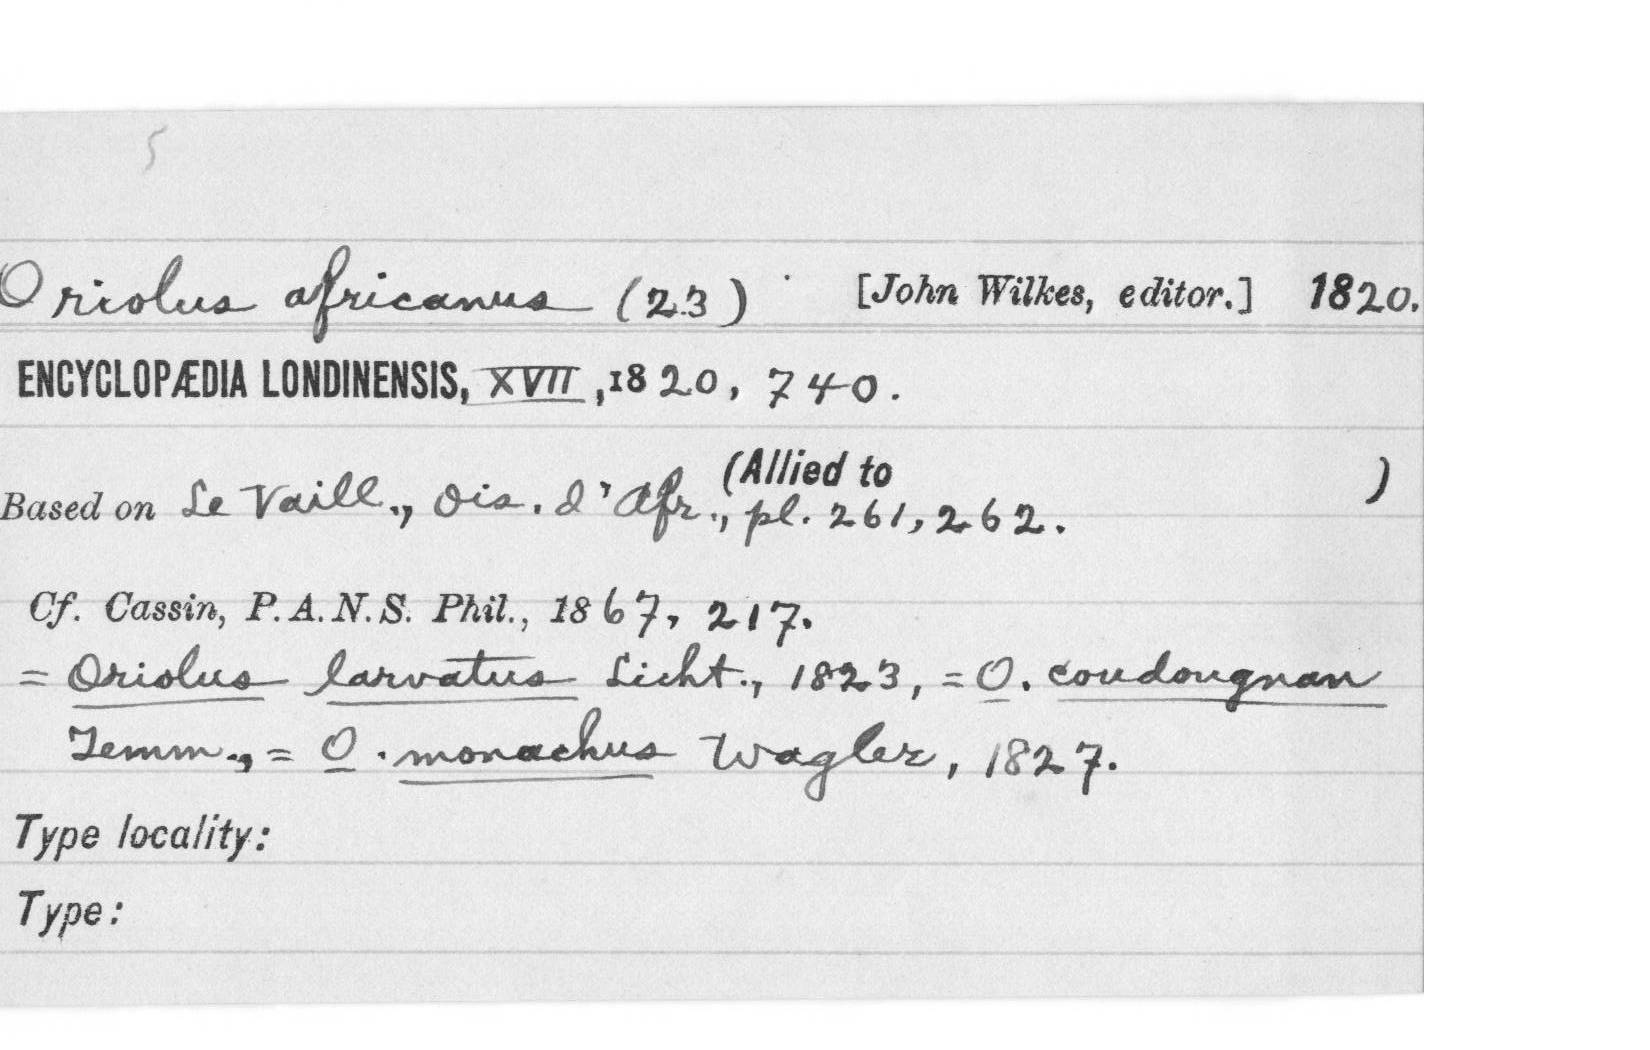 5
Oriolus africanus (23) [John Wilkes, editor.] 1820.
ENCYCLOPÆDIA LONDINENSIS, XVII, 1820, 740.
(Allied to )
Based on Le Vaill., Ois. d'Afr., pl. 261, 262.
Cf. Cassin, P. A. N. S. Phil., 1867, 217.
= Oriolus larvatus Licht., 1823, = O. coudougnan
Temm., = O. monachus Wagler, 1827.
Type locality:
Type: